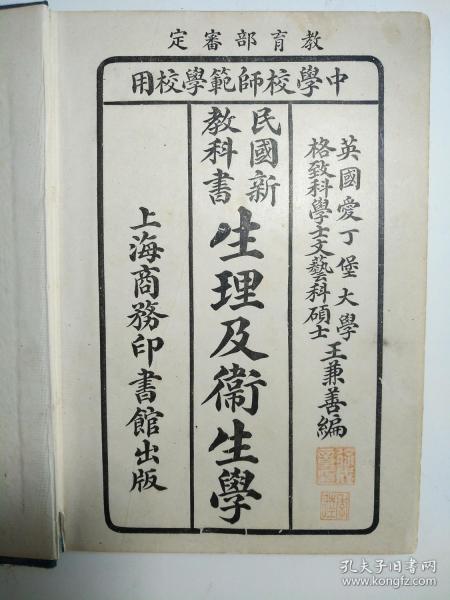 教育部審定
中學校師範學校用
英國愛丁堡大學
格致科學士文藝科碩士
王兼善編
民國新
教科書
生理及衞生學
上海商務印書館出版
孔夫子旧书网
www.kongfz.com